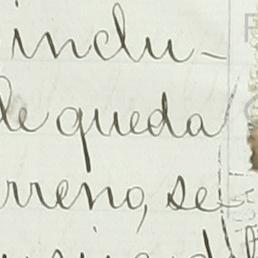 indu-
de queda
rreno, se